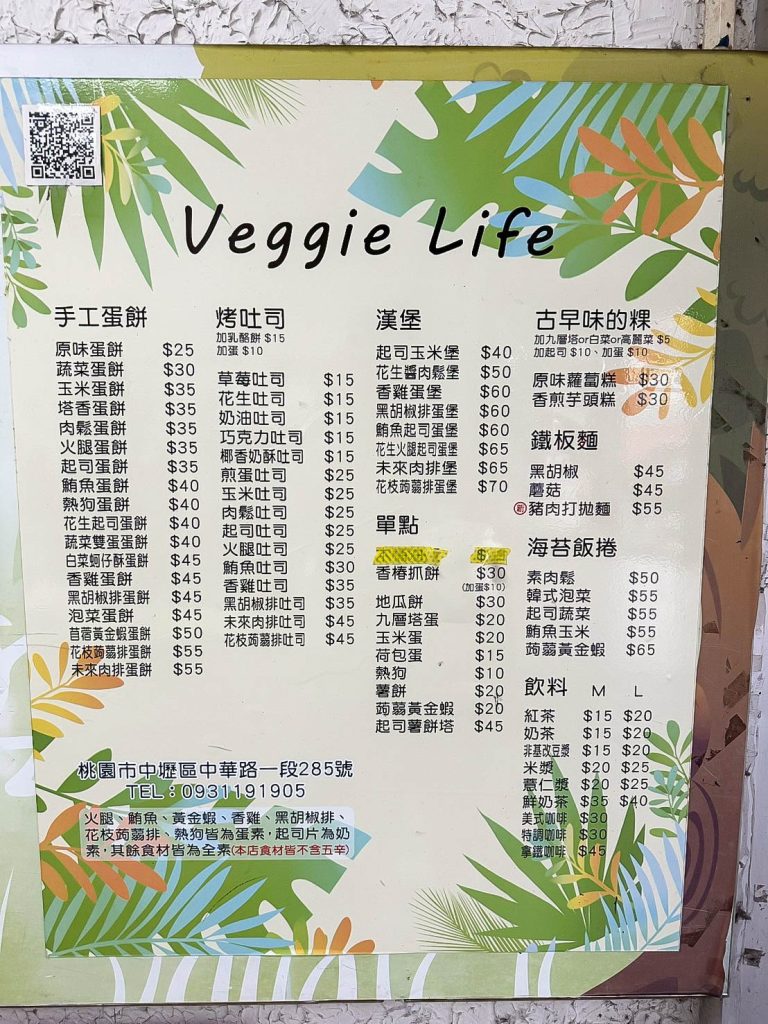 Veggie Life
手工蛋餅
原味蛋餅 $25
蔬菜蛋餅 $30
玉米蛋餅 $35
塔香蛋餅 $35
肉鬆蛋餅 $35
火腿蛋餅 $35
起司蛋餅 $35
鮪魚蛋餅 $40
熱狗蛋餅 $40
花生起司蛋餅 $40
蔬菜雙蛋蛋餅 $40
白菜蚵仔酥蛋餅 $45
香雞蛋餅 $45
黑胡椒排蛋餅 $45
泡菜蛋餅 $45
苜蓿黃金蝦蛋餅 $50
花枝蒟蒻排蛋餅 $55
未來肉排蛋餅 $55
烤吐司
加乳酪餅 $15
加蛋 $10
草莓吐司 $15
花生吐司 $15
奶油吐司 $15
巧克力吐司 $15
椰香奶酥吐司 $15
煎蛋吐司 $25
玉米吐司 $25
肉鬆吐司 $25
起司吐司 $25
火腿吐司 $25
鮪魚吐司 $30
香雞吐司 $35
黑胡椒排吐司 $35
未來肉排吐司 $45
花枝蒟蒻排吐司 $45
漢堡
起司玉米堡 $40
花生醬肉鬆堡 $50
香雞蛋堡 $60
黑胡椒排蛋堡 $60
鮪魚起司蛋堡 $60
花生火腿起司蛋堡 $65
未來肉排堡 $65
花枝蒟蒻排蛋堡 $70
單點
香椿抓餅 $30
(加蛋$10)
地瓜餅 $30
九層塔蛋 $20
玉米蛋 $20
荷包蛋 $15
熱狗 $10
薯餅 $20
蒟蒻黃金蝦 $20
起司薯餅塔 $45
古早味的粿
加九層塔or白菜or高麗菜 $5
加起司 $10、加蛋 $10
原味蘿蔔糕 $30
香煎芋頭糕 $30
鐵板麵
黑胡椒 $45
蘑菇 $45
豬肉打拋麵 $55
海苔飯捲
素肉鬆 $50
韓式泡菜 $55
起司蔬菜 $55
鮪魚玉米 $55
蒟蒻黃金蝦 $65
飲料 M L
紅茶 $15 $20
奶茶 $15 $20
非基改豆漿 $15 $20
米漿 $20 $25
薏仁漿 $20 $25
鮮奶茶 $35 $40
美式咖啡 $30
特調咖啡 $30
拿鐵咖啡 $45
桃園市中壢區中華路一段285號
TEL：0931191905
火腿、鮪魚、黃金蝦、香雞、黑胡椒排、
花枝蒟蒻排、熱狗皆為蛋素，起司片為奶
素，其餘食材皆為全素(本店食材皆不含五辛)